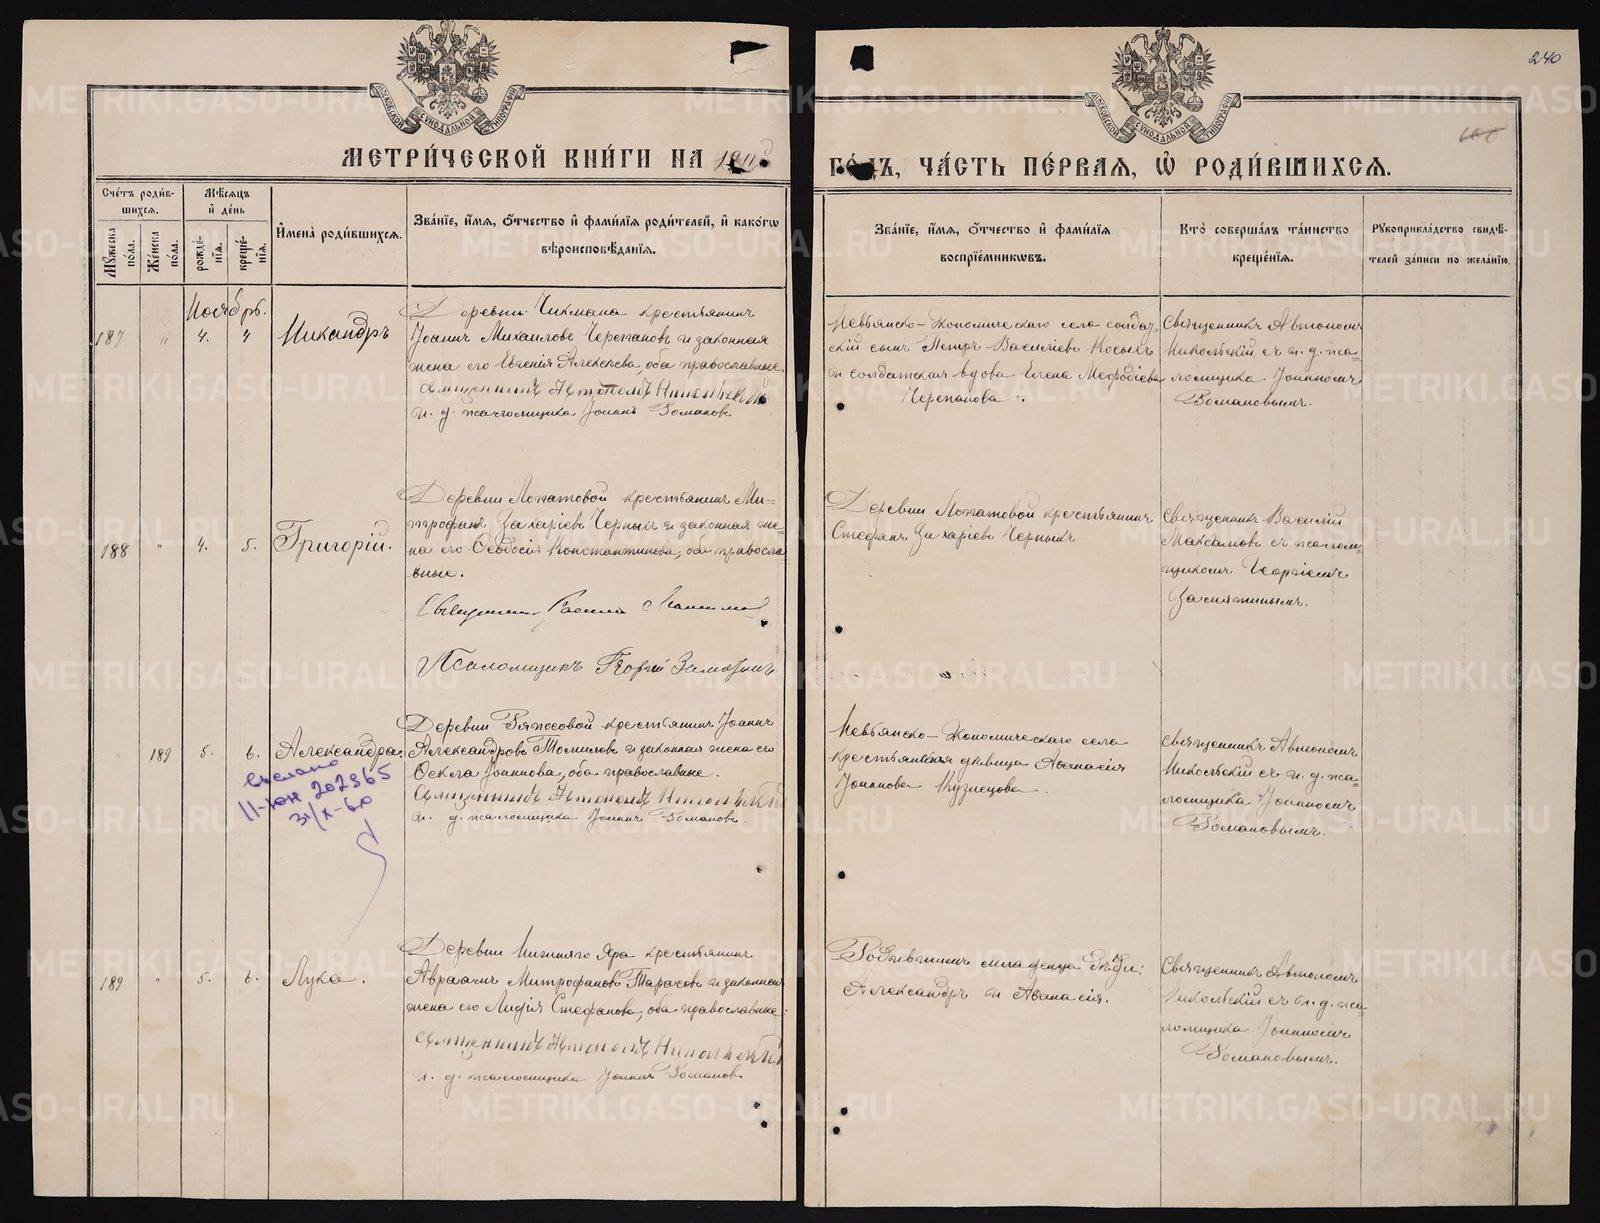 240
100
МОСКОВСКОЙ СѴНОДАЛЬНОЙ ТИПОГРАФІИ
МОСКОВСКОЙ СѴНОДАЛЬНОЙ ТИПОГРАФІИ
МЕТРИ́ЧЕСКОЙ КНИ́ГИ НА
ГО́ДЪ, ЧА́СТЬ ПЕ́РВАЯ, Ѡ҆ РОДИ́ВШИХСЯ.
Сче́тъ роди́в-
шихся.
Мꙋжеска по́ла.
Же́нска по́ла.
Мѣ́сяцъ
и҆ де́нь
рожде́-нїя.
креще́-нїя.
И҆мена̀ роди́вшихся.
Зва́нїе, и҆́мя, о҆́тчество и҆ фами́лїя роди́телей, и҆ како́гѡ
вѣроисповѣ́данїя.
Зва́нїе, и҆́мя, о҆́тчество и҆ фами́лїя
воспрїе́мникѡвъ.
Кто̀ соверша́лъ та́инство
креще́нїя.
Рꙋкоприкла́дство свидѣ́-
телей за́писи по жела́нїю.
Ноябрь.
187 " 4. 4 Никандръ
Деревни Чикмана крестьянинъ
Іоаннъ Михаиловъ Черепановъ и законная
жена его Евгенія Алексѣева, оба православные.
Священникъ Автономъ Никольскій
и. д. псаломщика Іоаннъ Романовъ
Невьянско-Экономическаго села солдат-
скій сынъ Петръ Василіевъ Косыхъ
и солдатская вдова Елена Меѳодіева
Черепанова.
Священникъ Автономъ
Никольскій съ и. д. пса-
ломщика Іоанномъ
Романовымъ.
188 " 4. 5. Григорій.
Деревни Лопатовой крестьянинъ Ми-
трофанъ Захаріевъ Черныхъ и законная же-
на его Ѳеодосія Константинова, оба православ-
ные.
Священникъ Василій Максимовъ
Псаломщикъ Георгій Замятинъ
Деревни Лопатовой крестьянинъ
Стефанъ Захаріевъ Черныхъ
Священникъ Василій
Максимовъ съ псалом-
щикомъ Георгіемъ
Замятинымъ.
189 5. 6. Александра.
Деревни Ряпосовой крестьянинъ Іоаннъ
Александровъ Томиловъ и законная жена его
Ѳекла Іоаннова, оба православные.
Священникъ Автономъ Никольскій
и. д. псаломщика Іоаннъ Романовъ.
II-юн 202365
31/X-60
Невьянско-Экономическаго села
крестьянская дѣвица Аѳанасія
Іоаннова Кузнецова.
Священникъ Автономъ
Никольскій съ и. д. пса-
ломщика Іоанномъ
Романовымъ.
189 " 5. 6. Лука.
Деревни Нижняго Яра крестьянинъ
Авраамъ Митрофановъ Тарасовъ и законная
жена его Лидія Стефанова, оба православные.
Священникъ Автономъ Никольскій
и. д. псаломщика Іоаннъ Романовъ
Родившимся младенца
Александръ и Аѳанасія.
Священникъ Автономъ
Никольскій съ и. д. пса-
ломщика Іоанномъ
Романовымъ.
METRIKI.GASO-URAL.RU